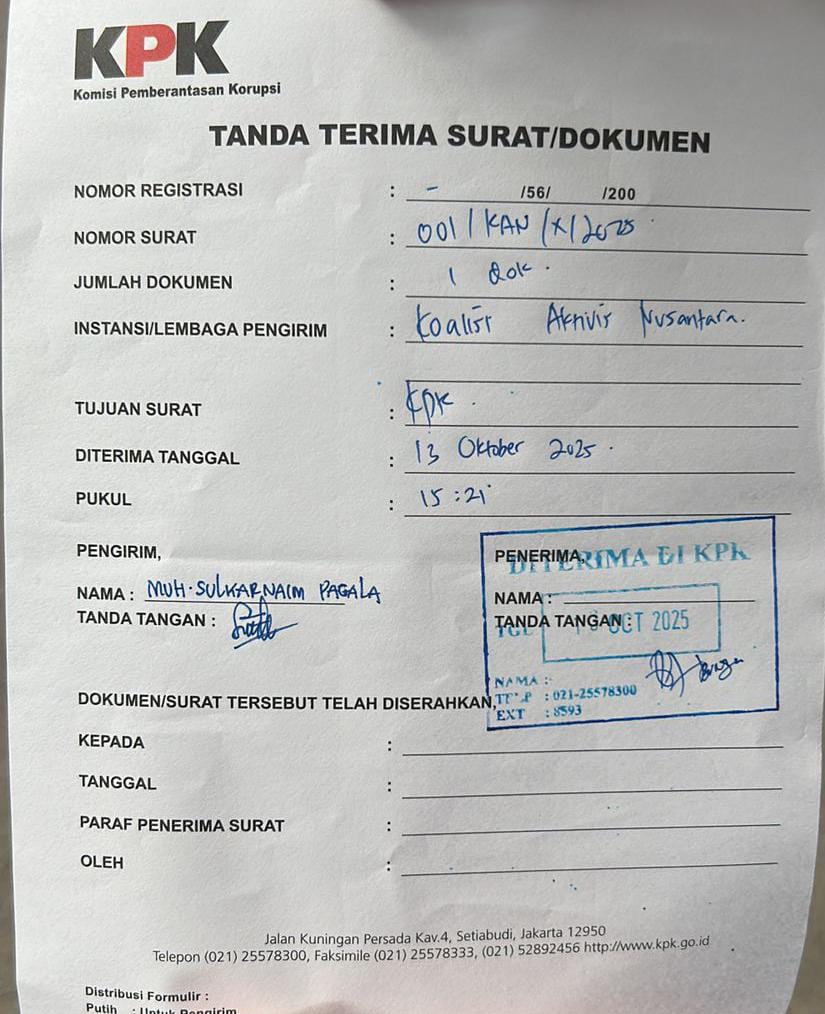 KPK
Komisi Pemberantasan Korupsi
TANDA TERIMA SURAT/DOKUMEN
NOMOR REGISTRASI : - /56/ /200
NOMOR SURAT : 001/KAN/X/2025
JUMLAH DOKUMEN : 1 dok.
INSTANSI/LEMBAGA PENGIRIM : Koalisi Aktivis Nusantara.
TUJUAN SURAT : KPK.
DITERIMA TANGGAL : 13 Oktober 2025.
PUKUL : 15:21
PENGIRIM,
NAMA : MUH. SULKARNAIM PAGALA
TANDA TANGAN :
PENERIMA,
DITERIMA DI KPK
NAMA :
TANDA TANGAN :
TGL OCT 2025
NAMA :
TELP : 021-25578300
EXT : 8593
DOKUMEN/SURAT TERSEBUT TELAH DISERAHKAN,
KEPADA :
TANGGAL :
PARAF PENERIMA SURAT :
OLEH :
Jalan Kuningan Persada Kav.4, Setiabudi, Jakarta 12950
Telepon (021) 25578300, Faksimile (021) 25578333, (021) 52892456 http://www.kpk.go.id
Distribusi Formulir :
Putih : Untuk Pengirim